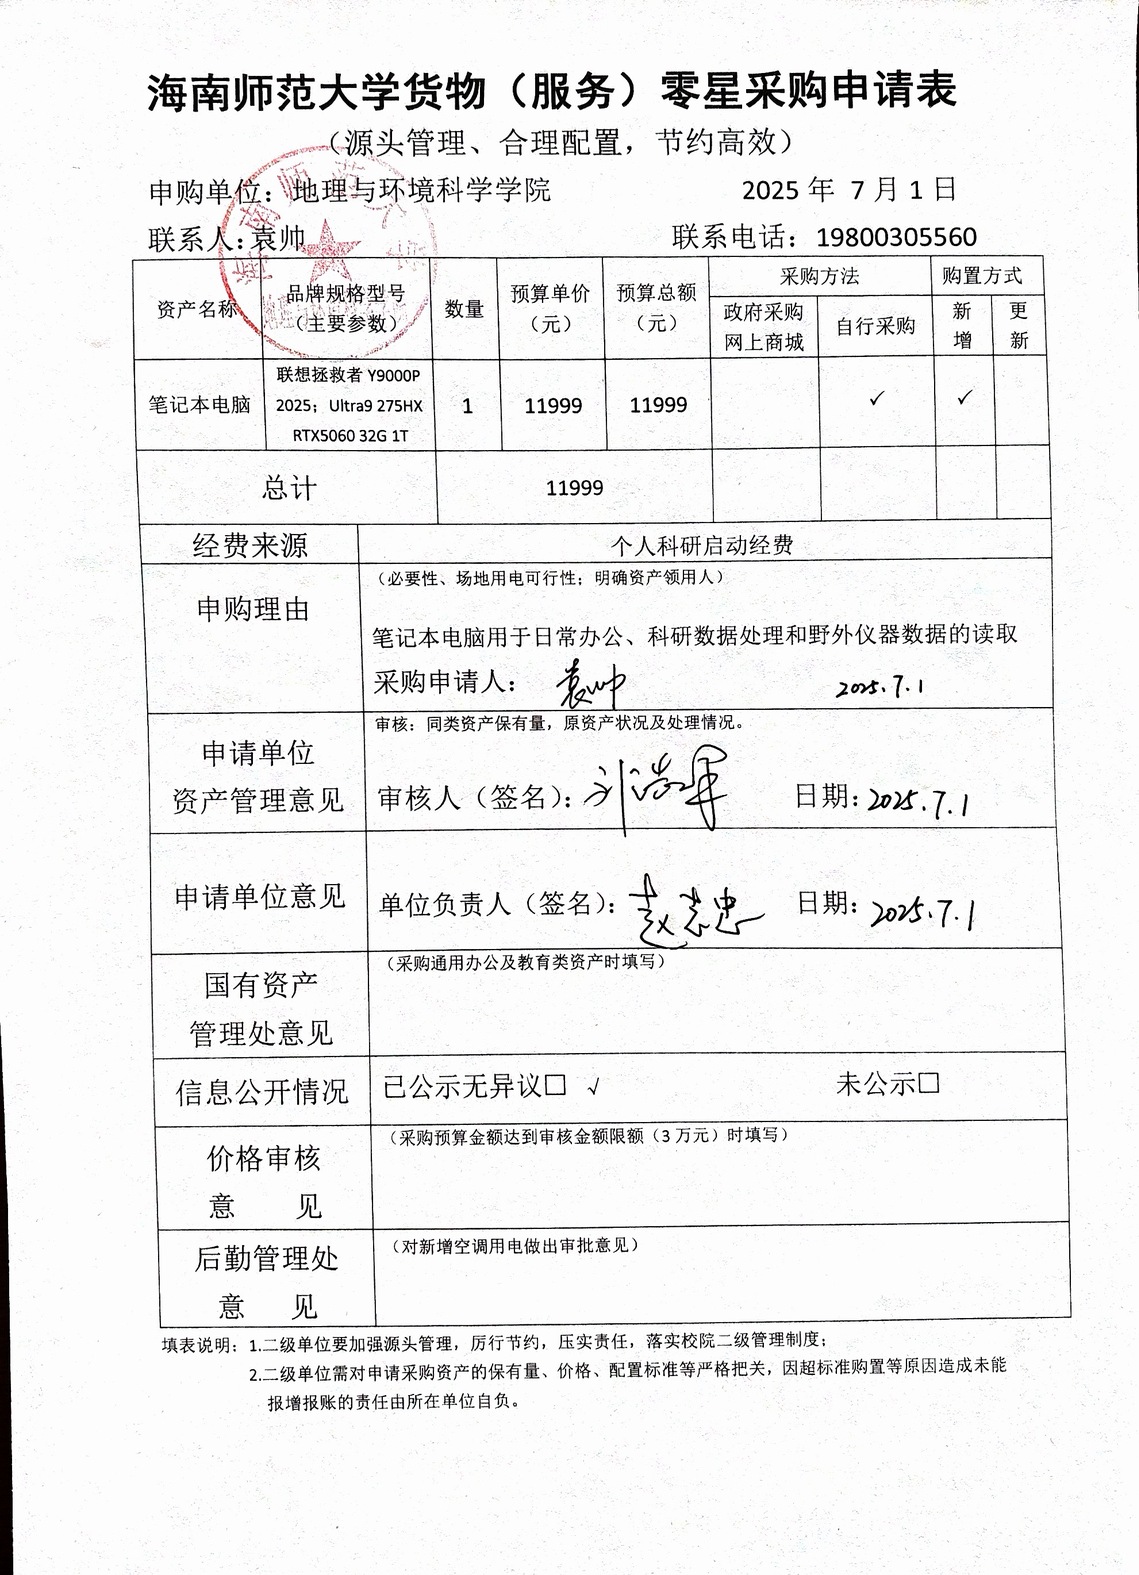 海南师范大学货物（服务）零星采购申请表
（源头管理、合理配置，节约高效）
申购单位：地理与环境科学学院 2025 年 7 月 1 日
联系人：袁帅 联系电话：19800305560
资产名称 品牌规格型号（主要参数） 数量 预算单价（元） 预算总额（元） 采购方法 购置方式
政府采购网上商城 自行采购 新增 更新
笔记本电脑 联想拯救者 Y9000P 2025；Ultra9 275HX RTX5060 32G 1T 1 11999 11999 ✓ ✓
总计 11999
经费来源 个人科研启动经费
申购理由
（必要性、场地用电可行性；明确资产领用人）
笔记本电脑用于日常办公、科研数据处理和野外仪器数据的读取
采购申请人： 袁帅 2025.7.1
申请单位
资产管理意见
审核：同类资产保有量，原资产状况及处理情况。
审核人（签名）： 日期：2025.7.1
申请单位意见 单位负责人（签名）：赵志忠 日期：2025.7.1
国有资产
管理处意见
（采购通用办公及教育类资产时填写）
信息公开情况 已公示无异议□ √ 未公示□
价格审核
意 见
（采购预算金额达到审核金额限额（3 万元）时填写）
后勤管理处
意 见
（对新增空调用电做出审批意见）
填表说明：1.二级单位要加强源头管理，厉行节约，压实责任，落实校院二级管理制度；
2.二级单位需对申请采购资产的保有量、价格、配置标准等严格把关，因超标准购置等原因造成未能
报增报账的责任由所在单位自负。
海南师范大学